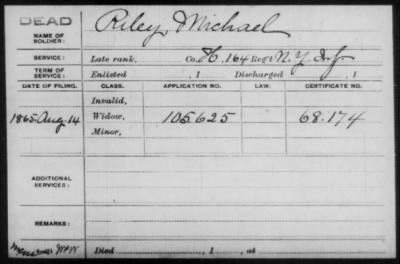 DEAD
NAME OF SOLDIER: Riley, Michael
SERVICE: Late rank, Co. H. 164 Reg't N.Y. Inf
TERM OF SERVICE: Enlisted , 1 Discharged , 1
DATE OF FILING. CLASS. APPLICATION NO. LAW. CERTIFICATE NO.
Invalid,
1865 Aug. 14 Widow, 105.625 68.174
Minor,
ADDITIONAL SERVICES:
REMARKS:
Died , 1 , at